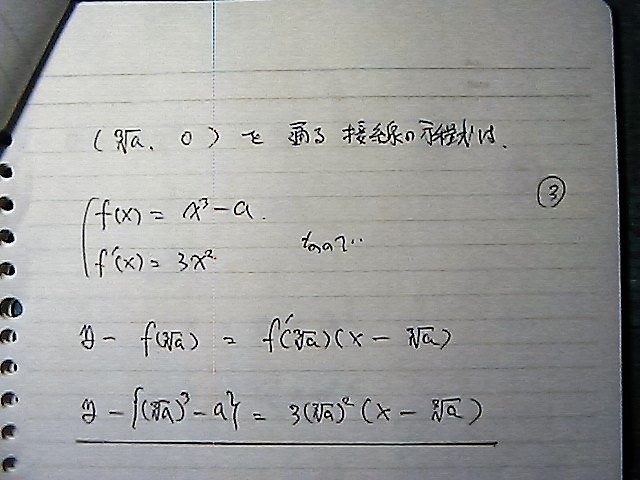 (∛a, 0) を通る接線の方程式は、
③
f(x) = x³ - a.
f'(x) = 3x² なので..
y - f(∛a) = f'(∛a)(x - ∛a)
y - {(∛a)³ - a} = 3(∛a)²(x - ∛a)